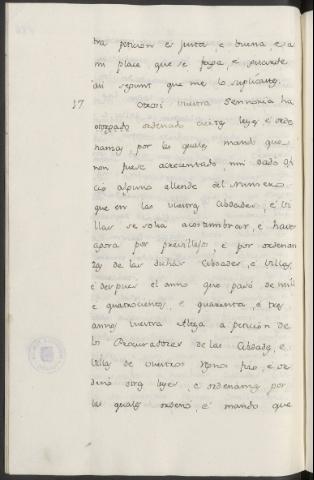 tra peticion es justa, e buena, e a
mi place que se faga, e guarde
asi segunt que me lo suplicastes.
17 Otrosi vuestra Sennoria ha
otorgado ordenado ciertas leyes e orde
nanzas, por las quales mando que
non fuese acrecentado, nin dado ofi
cio alguno allende del numero
que en las vuestras Cibdades, e Vi
llas se solia acostumbrar, e haver
agora por previllejos, e por ordenan
zas de las dichas Cibdades, e Villas,
e despues el anno que pasó de mil
e quatrocientos, e quarenta, e tres
annos vuestra Alteza a peticion de
los Procuradores de las Cibdades, e
Villas de vuestros Regnos fizo, e or
denó otras leyes, e ordenanzas por
las quales ordenó, e mandó que